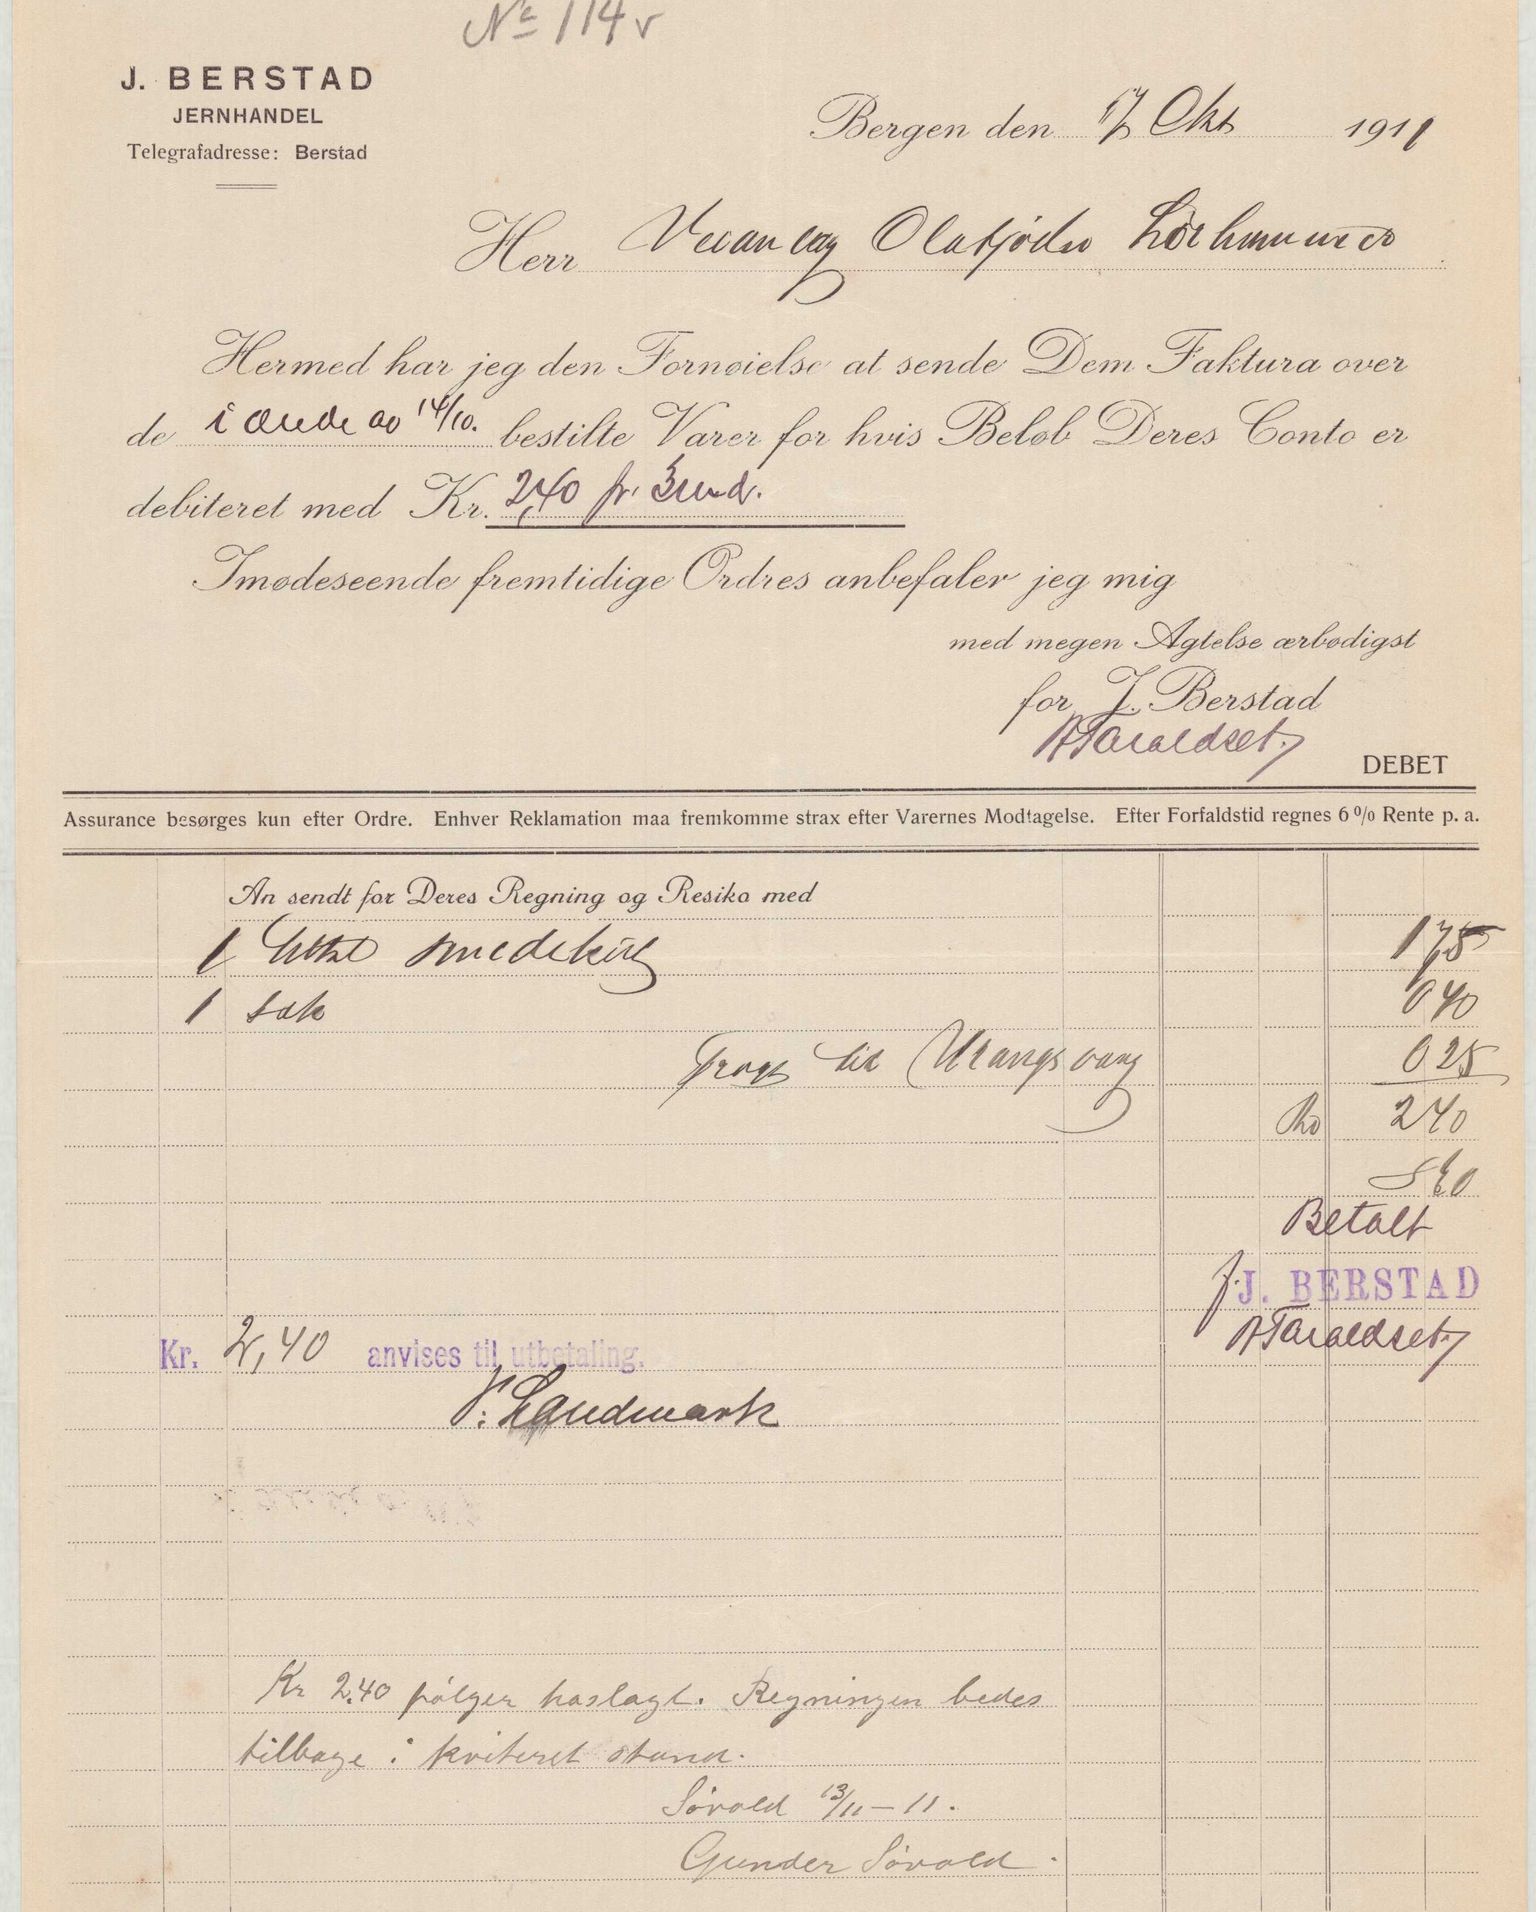 No 114
J. BERSTAD
JERNHANDEL
Telegrafadresse: Berstad
Bergen den 17 Okt 1911
Herr
Hermed har jeg den Fornøielse at sende Dem Faktura over
de i ærede av 14/10. bestilte Varer for hvis Beløb Deres Conto er
debiteret med Kr. 2,40 pr.
Imødeseende fremtidige Ordres anbefaler jeg mig
med megen Agtelse ærbødigst
for J. Berstad
A Taraldset
DEBET
Assurance besørges kun efter Ordre. Enhver Reklamation maa fremkomme strax efter Varernes Modtagelse. Efter Forfaldstid regnes 6 % Rente p. a.
An sendt for Deres Regning og Resiko med
1 smedekul 175
1 sæk 040
Fragt til 025
240
Betalt
f. J. BERSTAD
A Taraldset
Kr. 2,40 anvises til utbetaling.
Landmark
Kr 2.40 følger hoslagt. Regningen bedes
tilbage i kviteret stand.
Sørvold 13/11-11.
Gunder Sørvold.